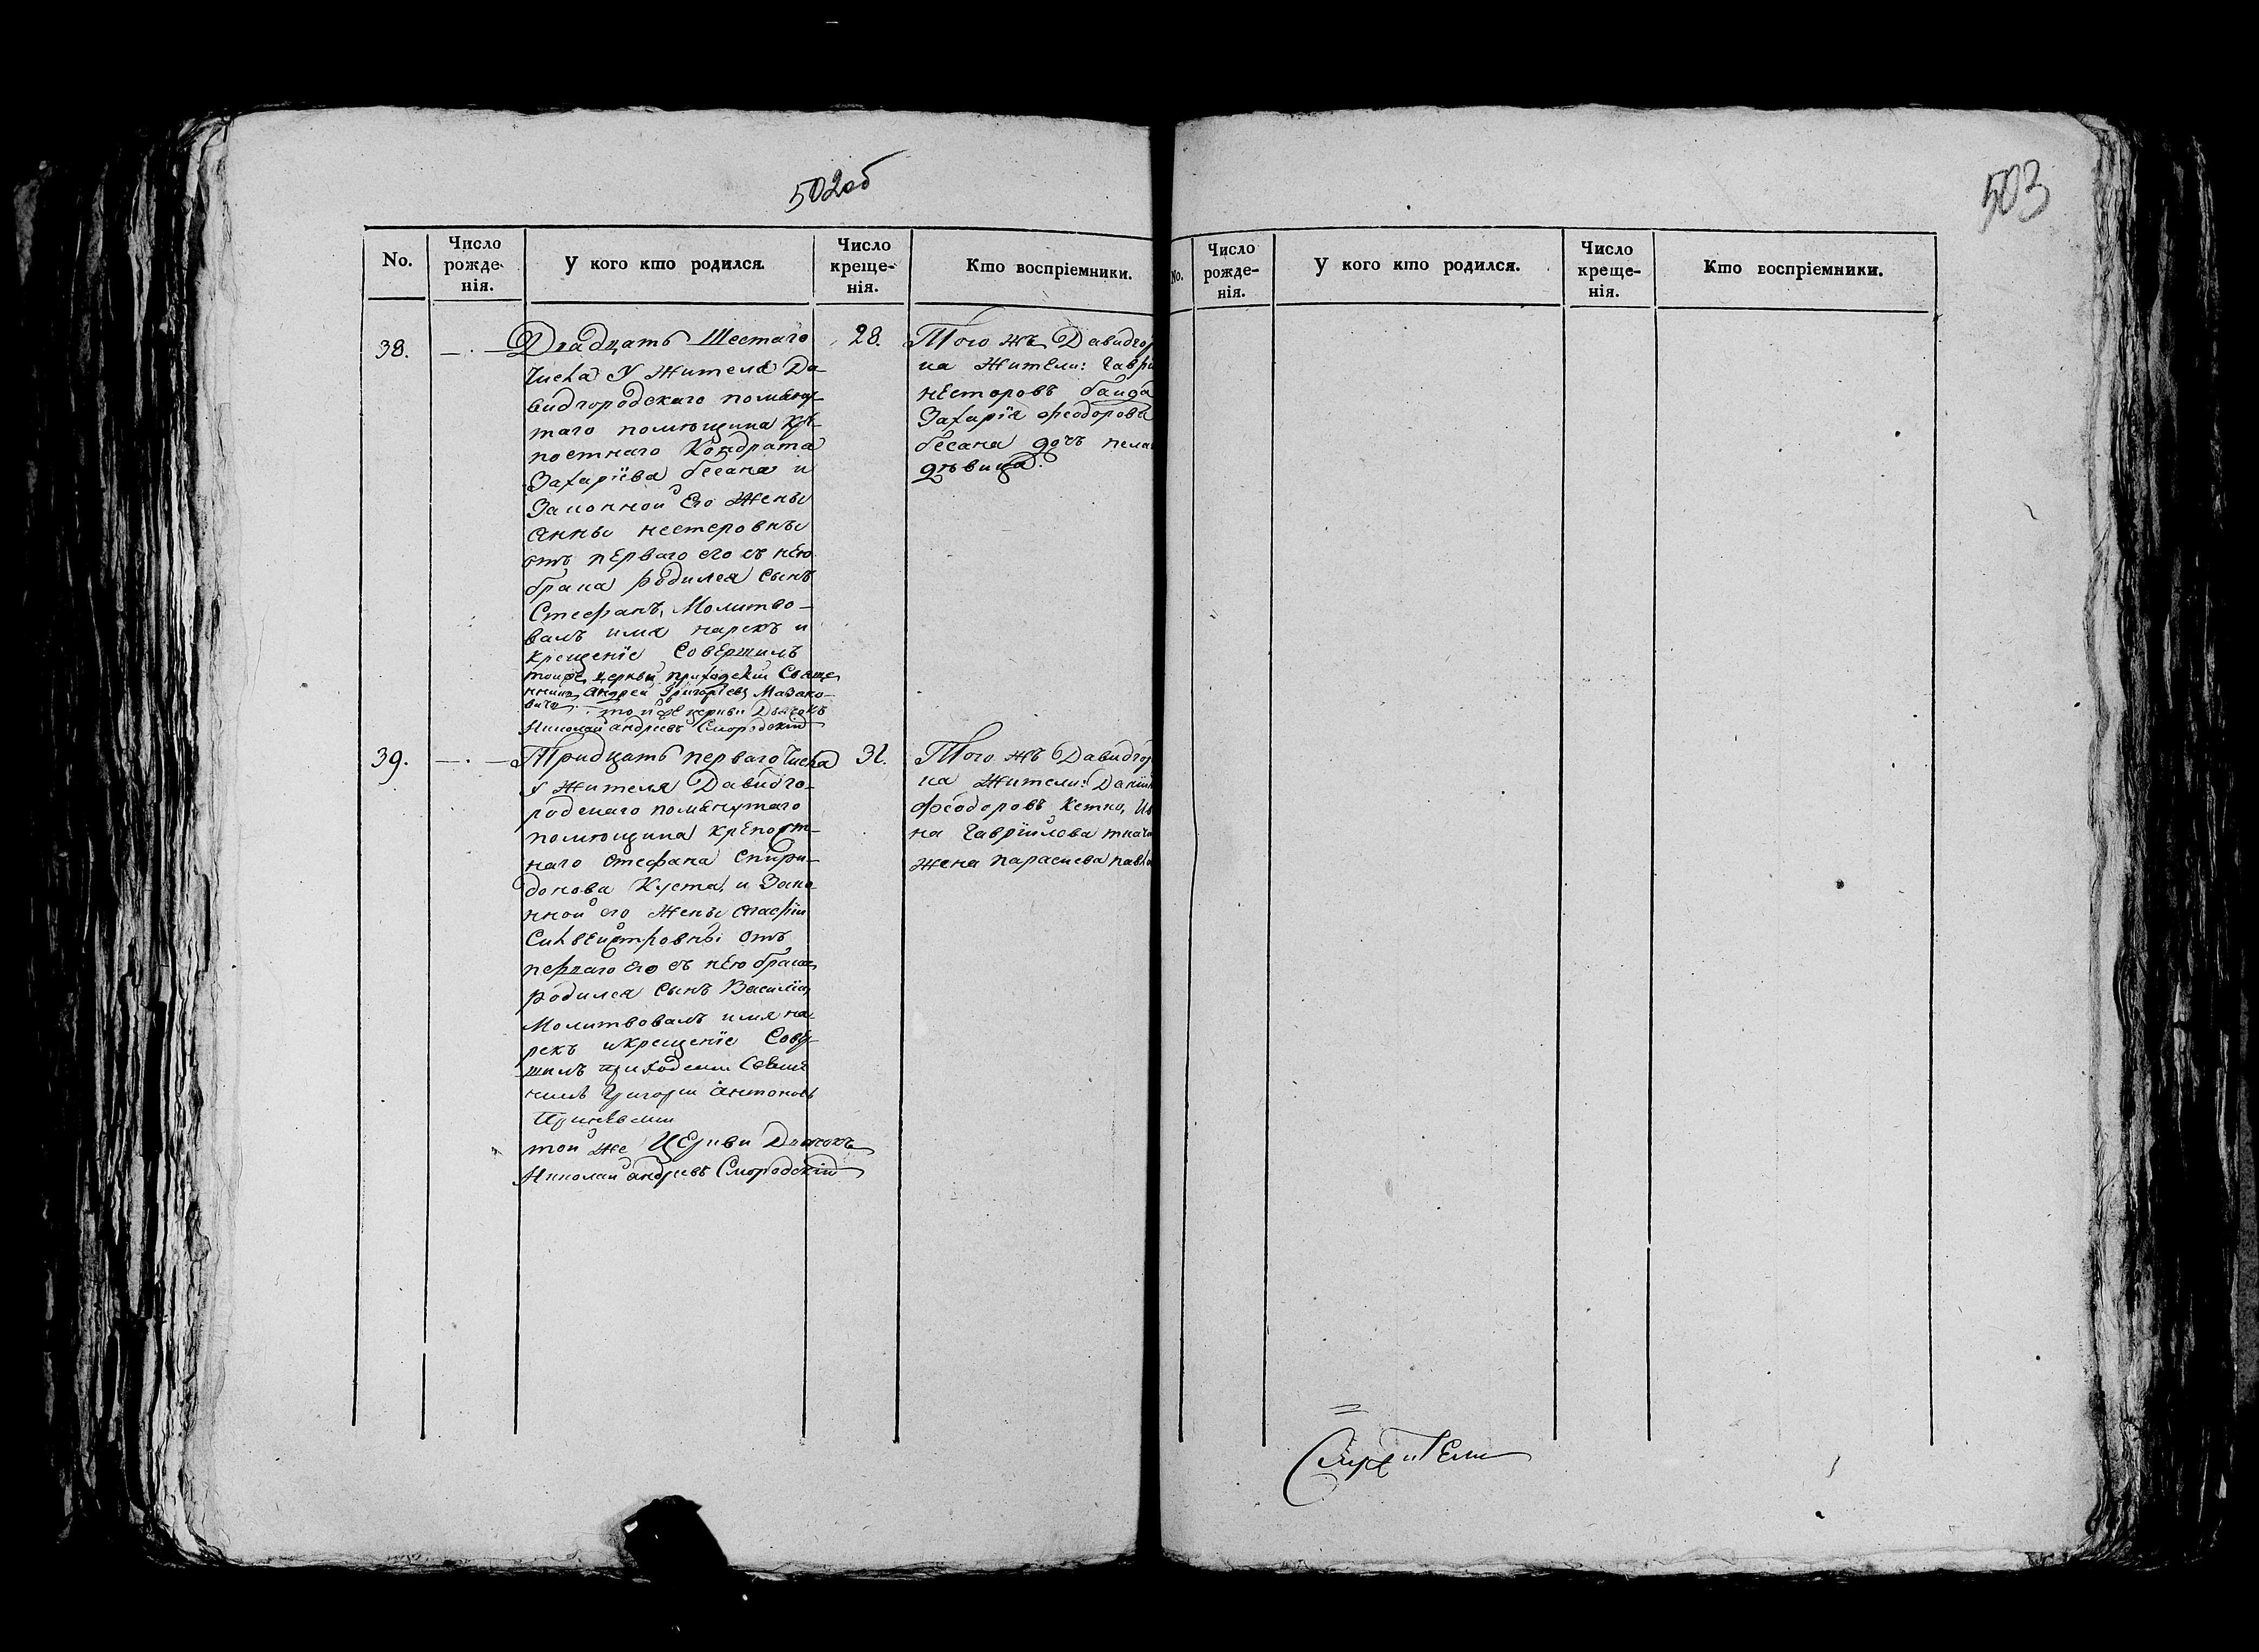 502об
No.
Число рожде- нія.
У кого кто родился.
Число креще- нія.
Кто воспріемники.
38.
Двадцать Шестаго
числа У Жителя Да-
видгородскаго помяну-
таго помющика крѣ-
постнаго Кондрата
Захаріева бесана и
Законной Его Жены
Анны нестеровны
отъ перваго его съ нею
брака родился сынъ
Стефанъ, Молитво-
валъ имя нарекъ и
крещеніе Совершилъ
тойже церкви приходскій Свяще
нникъ Андрей Григоріевъ
той же церкви Дьячекъ
Николай андреевъ Смородскій
28.
Того жъ Давидгор
ка Жители: Гаври
несторовъ байда
Захарія феодорова
бесана дочъ пела
дѣвица.
39.
Тридцать перваго числа
У Жителя Давидго-
родскаго помянутаго
помющика крепост-
наго Стефана Спири-
донова Куста, и Зако-
нной его Жены Агафіи
Силвейстровны отъ
перваго его съ нею брака
родился сынъ Василій
Молитвовалъ имя на-
рекъ и крещеніе Совер-
шилъ приходскій Священ
никъ Григорій Антоновъ
той же Церкви Дьячокъ
Николай андреевъ Смородскій
31.
Того жъ Давидгор
ка Жители: Даніи
Феодоровъ Кетко, Ив
на Гавріилова ткача
Жена параскева павло
503
No.
Число рожде- нія.
У кого кто родился.
Число креще- нія.
Кто воспріемники.